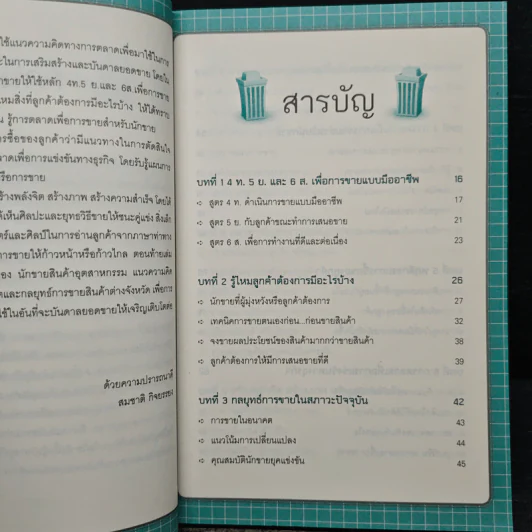 ใช้แนวความคิดทางการตลาดเพื่อมาใช้ในการ
ในการเสริมสร้างและบันดาลยอดขาย โดยใน
ขายให้ใช้หลัก 4ท.5 ย.และ 6ส.เพื่อการขาย
ไหมสิ่งที่ลูกค้าต้องการมีอะไรบ้าง ให้ได้ทราบ
รู้การตลาดเพื่อการขายสำหรับนักขาย
การซื้อของลูกค้าว่ามีแนวทางในการตัดสินใจ
ตลาดเพื่อการแข่งขันทางธุรกิจ โดยรับรู้แผนการ
หรือการขาย
สร้างพลังจิต สร้างภาพ สร้างความสำเร็จ โดยได้
ให้เห็นศิลปะและยุทธวิธีขายให้ชนะคู่แข่ง สิ่งเล็ก
และศิลป์ในการอ่านลูกค้าจากภาษาท่าทาง
การขายให้ก้าวหน้าหรือก้าวไกล ตอนท้ายเล่ม
ของ นักขายสินค้าอุตสาหกรรม แนวความคิด
และกลยุทธ์การขายสินค้าต่างจังหวัด เพื่อการ
ใช้ในอันที่จะบันดาลยอดขายให้เจริญเติบโตต่อ
ด้วยความปรารถนาดี
สมชาติ กิจยรรยง
สารบัญ
บทที่ 1 4 ท. 5 ย. และ 6 ส. เพื่อการขายแบบมืออาชีพ 16
➪ สูตร 4 ท. ดำเนินการขายแบบมืออาชีพ 17
➪ สูตร 5 ย. กับลูกค้าขณะทำการเสนอขาย 21
➪ สูตร 6 ส. เพื่อการทำงานที่ดีและต่อเนื่อง 23
บทที่ 2 รู้ไหมลูกค้าต้องการมีอะไรบ้าง 26
➪ นักขายที่ผู้มุ่งหวังหรือลูกค้าต้องการ 27
➪ เทคนิคการขายตนเองก่อน...ก่อนขายสินค้า 32
➪ จงขายผลประโยชน์ของสินค้ามากกว่าขายสินค้า 38
➪ ลูกค้าต้องการให้มีการเสนอขายที่ดี 39
บทที่ 3 กลยุทธ์การขายในสภาวะปัจจุบัน 42
➪ การขายในอนาคต 43
➪ แนวโน้มการเปลี่ยนแปลง 44
➪ คุณสมบัตินักขายยุคแข่งขัน 45